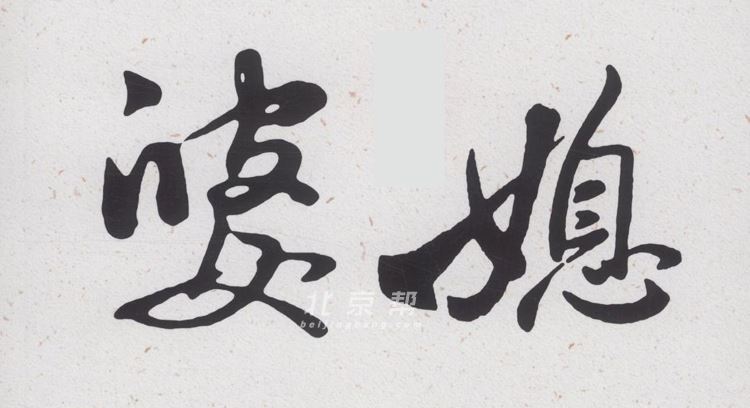 婆媳
北京帮
beijingbang.com